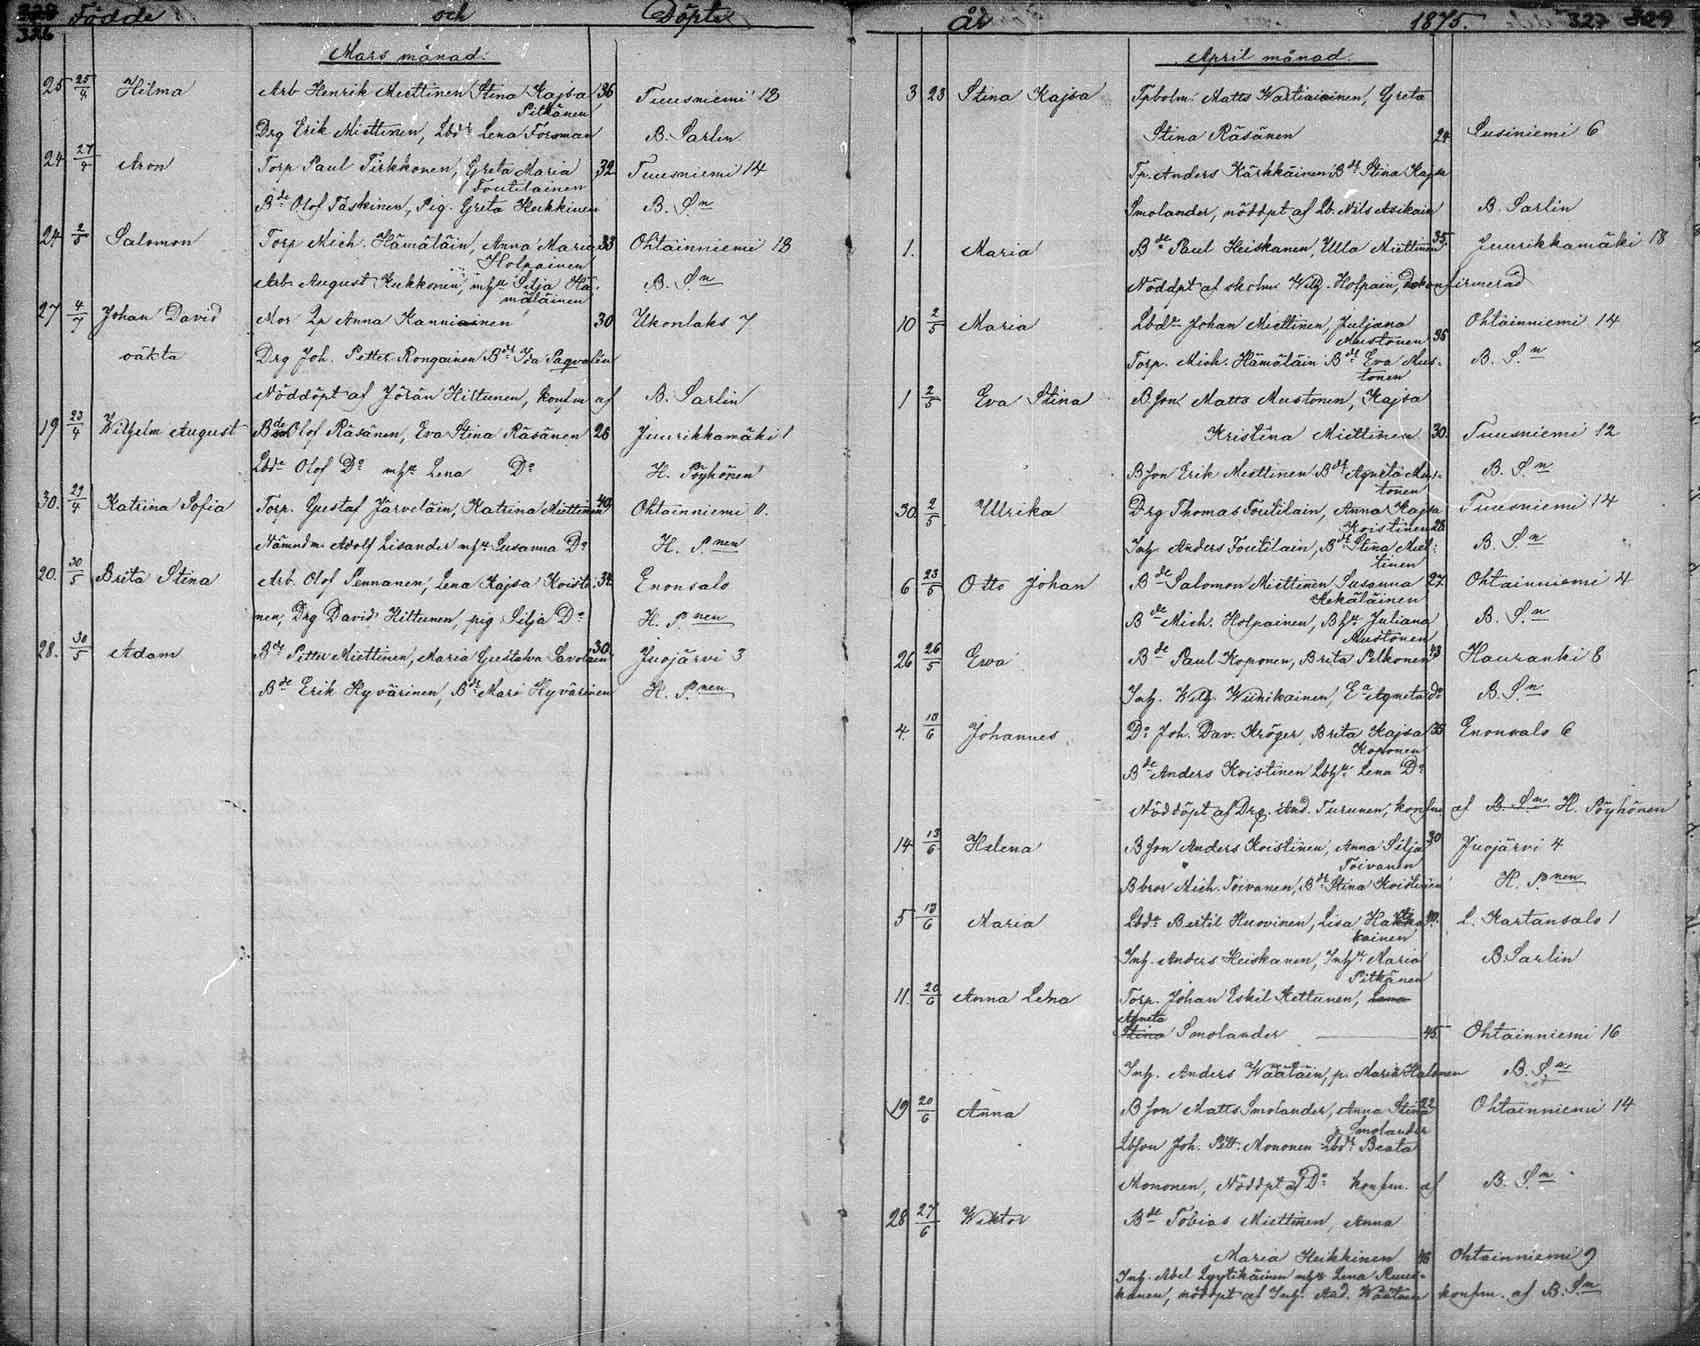 326 Födde och Döpte
Mars månad.
25 25/4 Hilma Arb Henrik Miettinen, Stina Kajsa 36 Tuusniemi 13
Pitkänen
Drg Erik Miettinen, Lbdr Lena Forsman B. Sarlin
24 27/4 Aron Torp Paul Tirkkonen, Greta Maria 32 Tuusniemi 14
Toutilainen
Bde Olof Räskinen, Pig. Greta Heikkinen B. Sn
24 2/5 Salomon Torp Mich. Hämäläin, Anna Maria 33 Ohtainniemi 13
Holpainen
Arb. August Kukkonen, mhu Silja Hä- B. Sn
mäläinen
27 4/7 Johan David Mor Lp Anna Kanniainen 30 Ukonlaks 7
oäkta Drg Joh. Petter Rongainen Bdr Ida Pagvalin
Nöddöpt af Jöran Hiltunen, konfm af B. Sarlin
19 23/4 Wilhelm August Bde Olof Räsänen, Eva Stina Räsänen 26 Juurikkamäki 1
Lbde Olof Do mhu Lena Do H. Pöyhönen
30. 29/4 Katrina Sofia Torp. Gustaf Järveläin, Katrina Miettinen 40 Ohtainniemi 11.
Nämndm. Adolf Lisander mhu Susanna Do H. Pnen
20. 30/5 Brita Stina Arb. Olof Pennanen, Lena Kajsa Koisti 34 Enonsalo
nen, Drg David Hiltunen, pig Silja Do H. Pnen
28. 30/5 Adam Bde Petter Miettinen, Maria Gustava Savolain 30 Juojärvi 3
Bde Erik Hyvärinen, Bdr Mari Hyvärinen H. Pnen
År 1875. 327
April månad.
3 23 Stina Kajsa Tpbolm. Matts Wartiainen, Greta
Stina Räsänen 24 Susiniemi 6
Tp. Anders Kärkkäinen Bdr Stina Kajsa
Smolander, nöddpt af Lb. Nils Asikain B. Sarlin
1. Maria Bde Paul Heiskanen, Ulla Miettinen 35 Juurikkamäki 18
Nöddpt af skolm. Wilh. Holpain, okonfirmerad
10 2/5 Maria Lbde Johan Miettinen, Juliana Ohtainniemi 14
Mustonen 36
Torp. Mich. Hämäläin Bdr Eva Mus- B. Sn
tonen
1 2/5 Eva Stina B. son Matts Mustonen, Kajsa
Kristina Miettinen 30. Tuusniemi 12
B son Erik Miettinen Bdr Agneta Mus- B. Sn
tonen
30 2/5 Ulrika Drg Thomas Toutilain, Anna Kajsa Tuusniemi 14
Koistinen 28
Inh. Anders Toutilain, Bdr Stina Miet- B. Sn
tinen
6 23/5 Otto Johan Bde Salomon Miettinen Susanna 27 Ohtainniemi 4
Kekäläinen
Bde Mich. Holpainen, Bhu Juliana B. Sn
Mustonen
26 26/5 Ewa Bde Paul Koponen, Brita Pelkonen 43 Hauranki 8
Inh. Wilh. Weinikainen, Ea Agneta do B. Sn
4. 10/6 Johannes Do Joh. Dav. Kröger, Brita Kajsa 35 Enonsalo 6
Koponen
Bde Anders Koistinen Lbhu Lena Do
Nöddöpt af Drg. And. Turunen, konfm af B. Sn H. Pöyhönen
14 13/6 Helena B son Anders Koistinen, Anna Silja 30 Juojärvi 4
Toivanen
B bror Mich. Toivanen, Bdr Stina Koistinen H. Pnen
5 13/6 Maria Lbde Bertil Huovinen, Lisa L. Kartansalo 1
kainen
Inh. Anders Heiskanen, Inhu Maria B Sarlin
Pitkänen
11. 20/6 Anna Lena Torp. Johan Eskil Kettunen, Lena
Agneta
Stina Smolander 45. Ohtainniemi 16
Inh. Anders Wäätäin, p. Maria Halonen B. Sn
19 20/6 Anna B son Matts Smolander, Anna Stina 22 Ohtainniemi 14
Smolander
Lbson Joh. Pett. Mononen Lbdr Beata
Mononen, Nöddpt af Do konfm. af B. Sn
28 27/6 Wiktor Bde Tobias Miettinen, Anna
Maria Heikkinen 46 Ohtainniemi 9
Inh. Abel Lyytikäinen mhu Lena Ruus-
kanen, nöddpt af Inh. And. Wäätäin konfm. af B. Sn